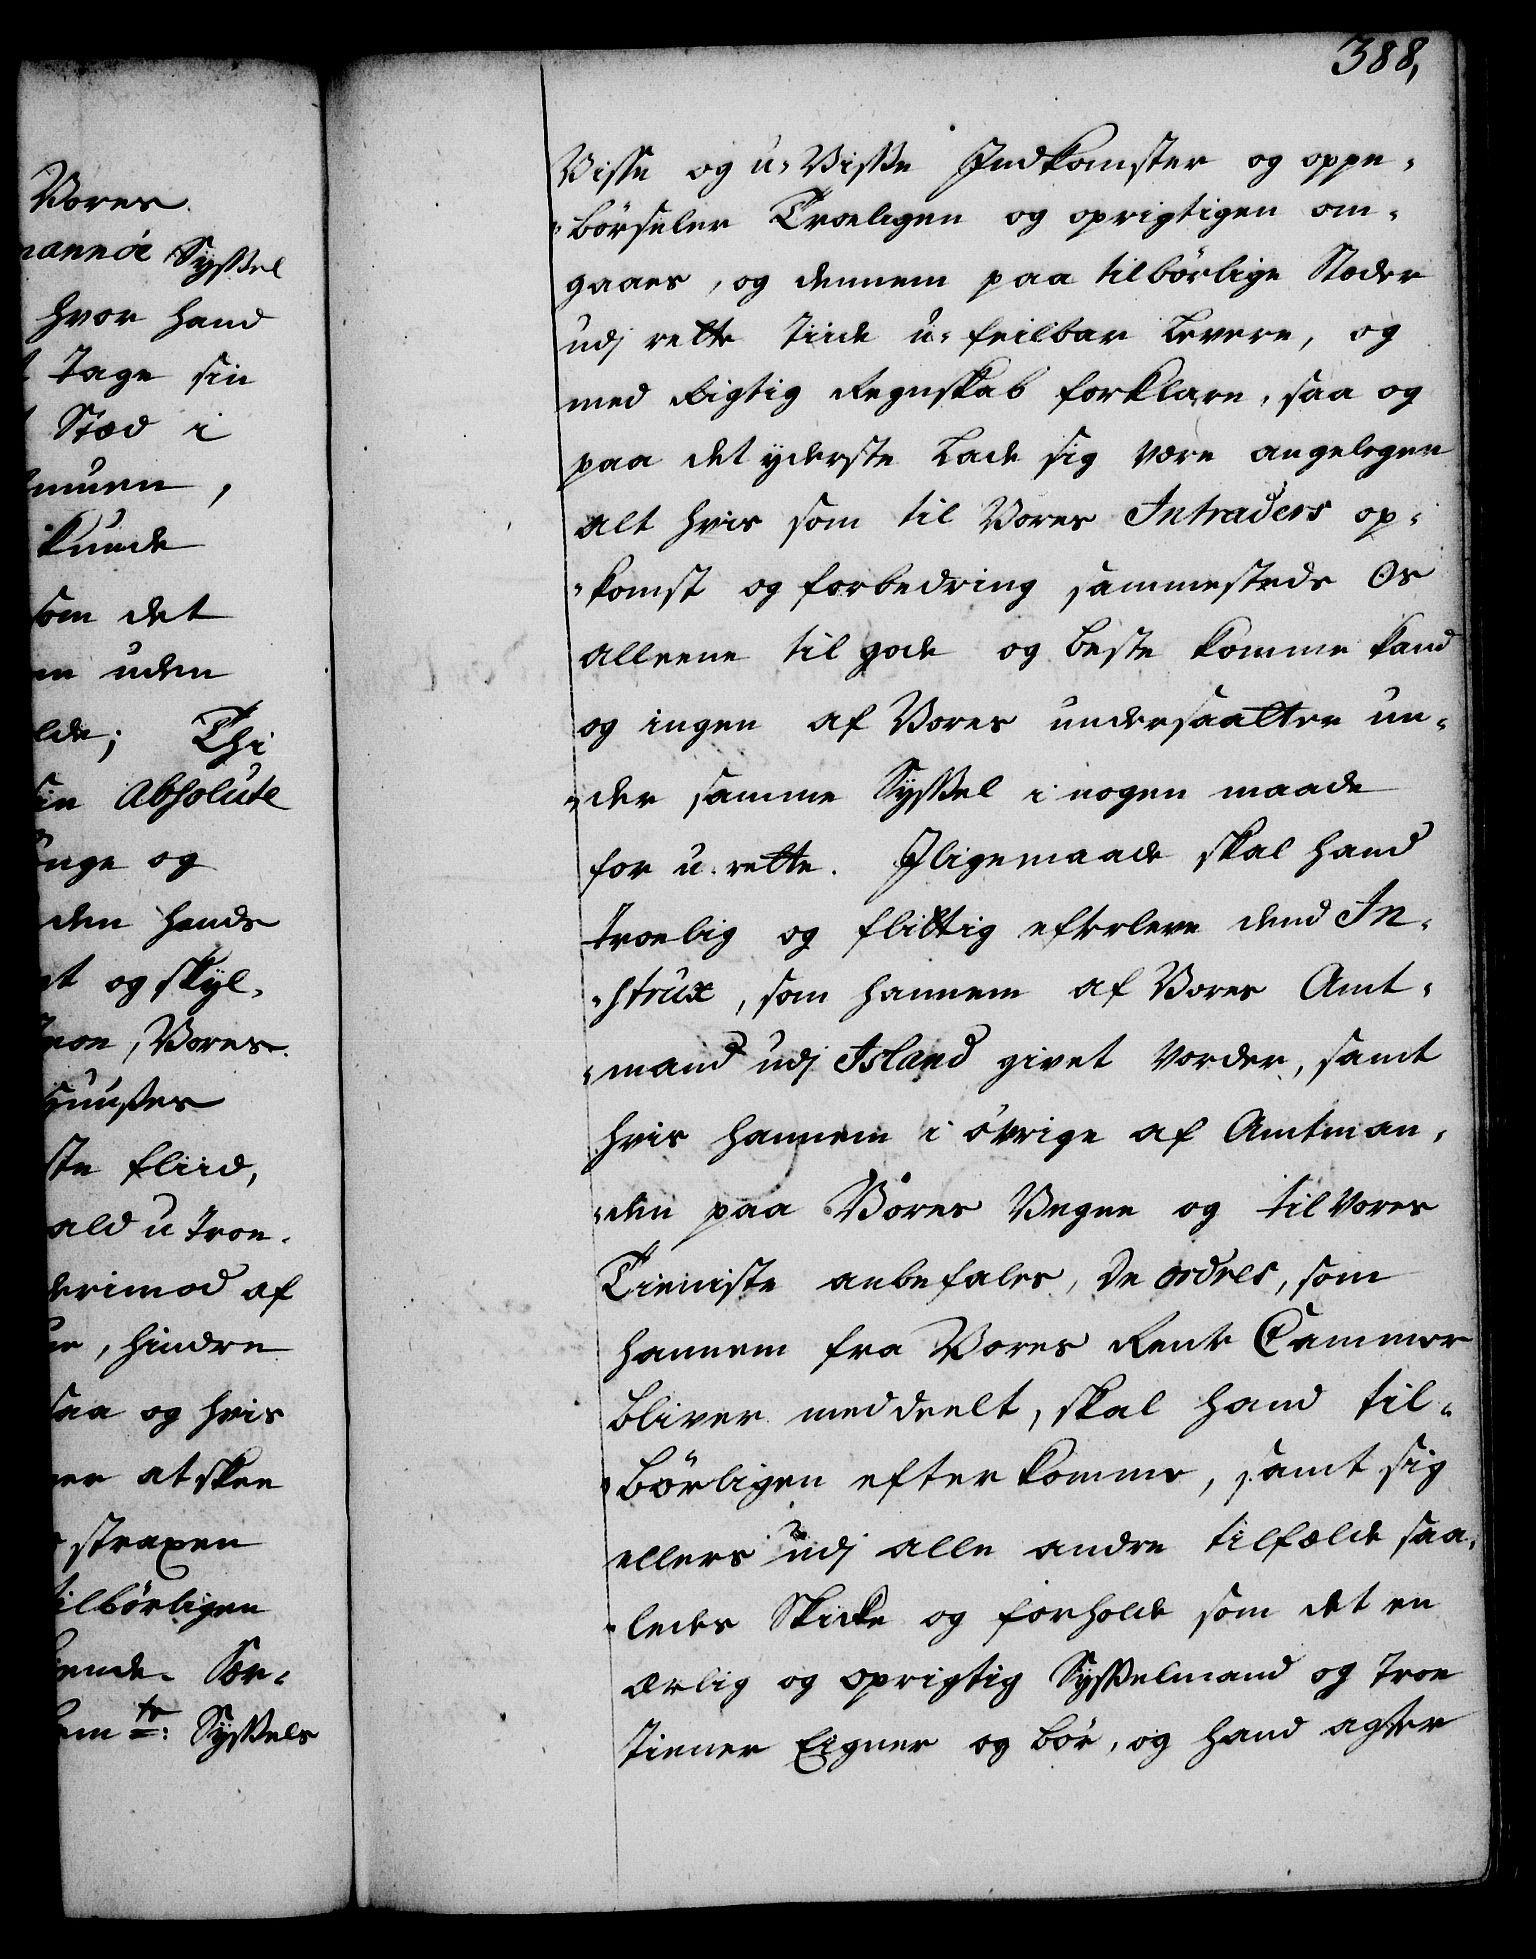 Vores
Syssel
hvor hand
Tage sin
Stæd i
kunde
som det
uden
Thi
Absolute
og
den hands
og skyl-
Vores
fliid,
ald u troe-
derimod af
, hindre
saa og hvis
at skee
straxen
tilbörligen
Sysßels
388,
Visse og u-Visse Indkomster og oppe-
-börseler Troeligen og oprigtigen om-
gaaes, og dennem paa tilbörlige Stæder
udj rette tiide u-feilbar Levere, og
med Rigtig Regnskab forklare, saa og
paa det yderste Lade sig være angelegen
alt hvis som til Vores Intraders op-
-komst og forbedring sammesteds Os
alleene til gode og beste komme kand
og ingen af Vores undersaatter un-
-der samme Sysßel i nogen maade
for u-rette. Jligemaade skal hand
troelig og flittig efterleve dend In-
-strux, som hannem af Vores Amt-
-mand udj Island givet vorder, samt
hvis hannem i övrige af Amtman-
-den paa Vores Vegne og til Vores
Tieniste anbefales, De ordres, som
hannem fra Vores Rente Cammer
bliver meddeelt, skal hand til-
-börligen efterkomme, samt sig
ellers udj alle andre tilfælde saa-
-ledes Skicke og forholde som det en
ærlig og oprigtig Sysßelmand og troe
tiener Eigner og bör, og hand agter